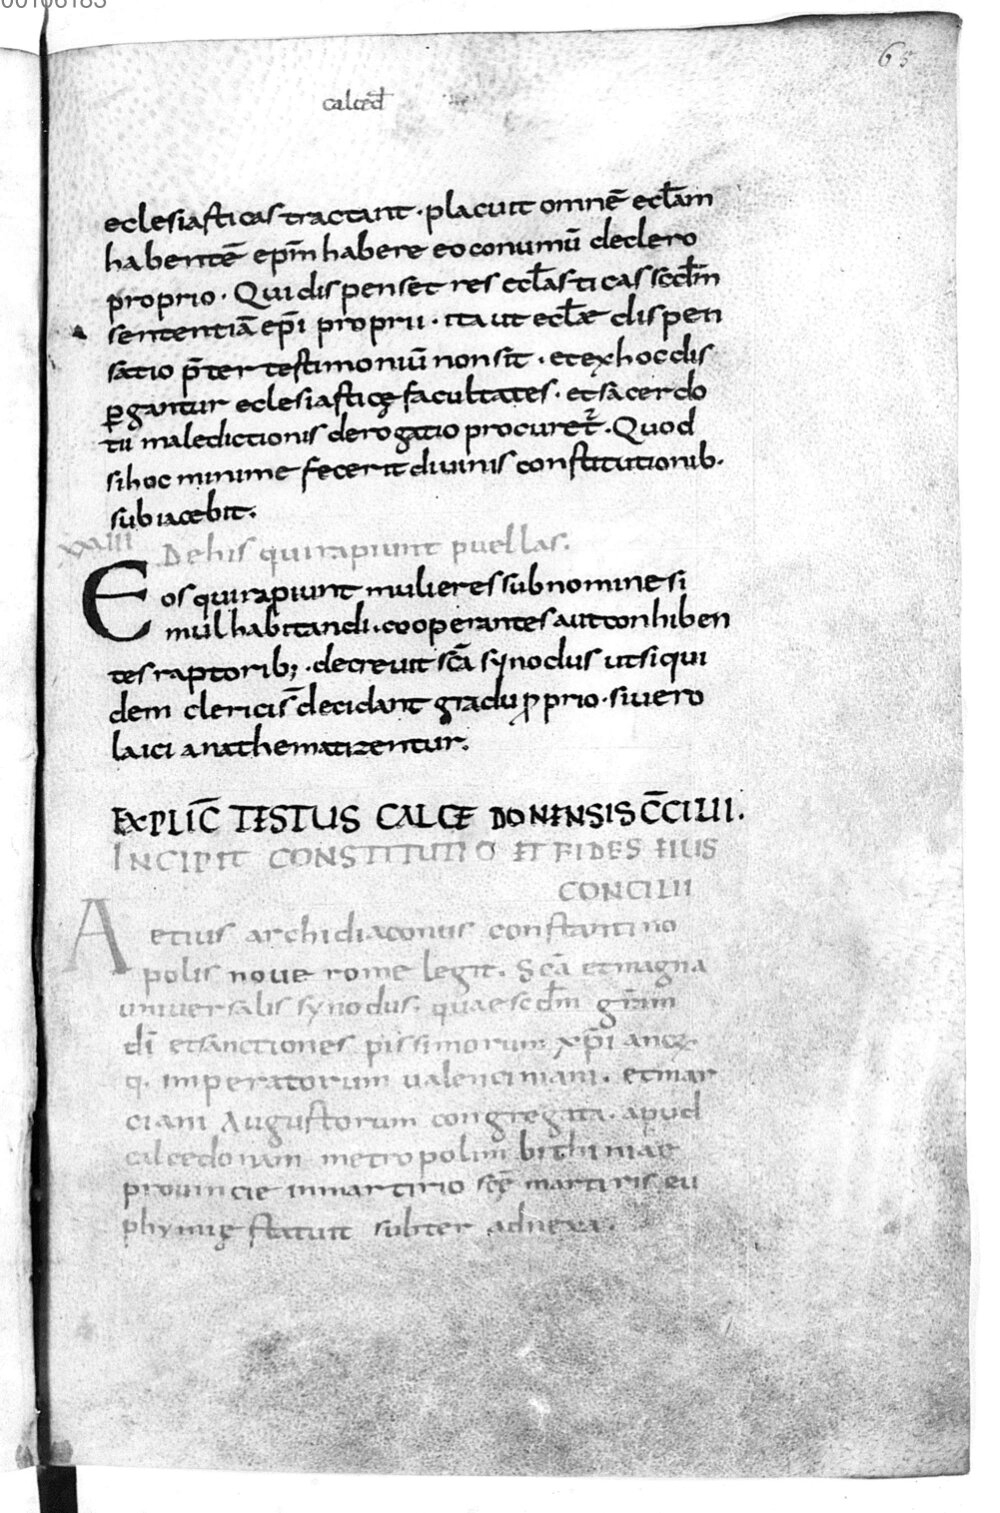 65
calced̄
eclesiasticas tractant · placuit omnē ecl̄am
habentē ep̄m habere eoconumū declero
proprio · Qui dispenset res ecl̄asticas scd̄m
sententiā ep̄i proprii · ita ut ecl̄æ dispen
satio p̄ter testimoniū non sit · et ex hoc dis
ꝑgantur eclesiasticę facultates · et sacerdo
tii maledictionis derogatio procuret᷑ · Quod
si hoc minime fecerit diuinis constitutionib·
subiacebit ·
XXVIII De his qui rapiunt puellas ·
Eos qui rapiunt mulieres sub nomine si
mul habitandi · cooperantes aut conhiben
tes raptorib; · decreuit sc̄a synodus ut si qui
dem clerici s̄ decidant gradu ꝓprio · si uero
laici anathematizentur ·
EXPLIC̄ TESTUS CALCEDONENSIS C̄C̄ILII ·
INCIPIT CONSTITUTIO ET FIDES EIIUS
CONCILII
Aetius archidiaconus constantino
polis noue rome legit · Sc̄a et magna
uniuersalis synodus · quae scd̄m gr̄am
dī et sanctiones piissimorum xp̄ianoꝝ
q · imperatorum ualenciniani · et mar
ciani Augustorum congregata · apud
calcedonam metropolim bithiniae
prouincie in martirio sc̄ę martiris eu
phymię statuit subter adnexa ·